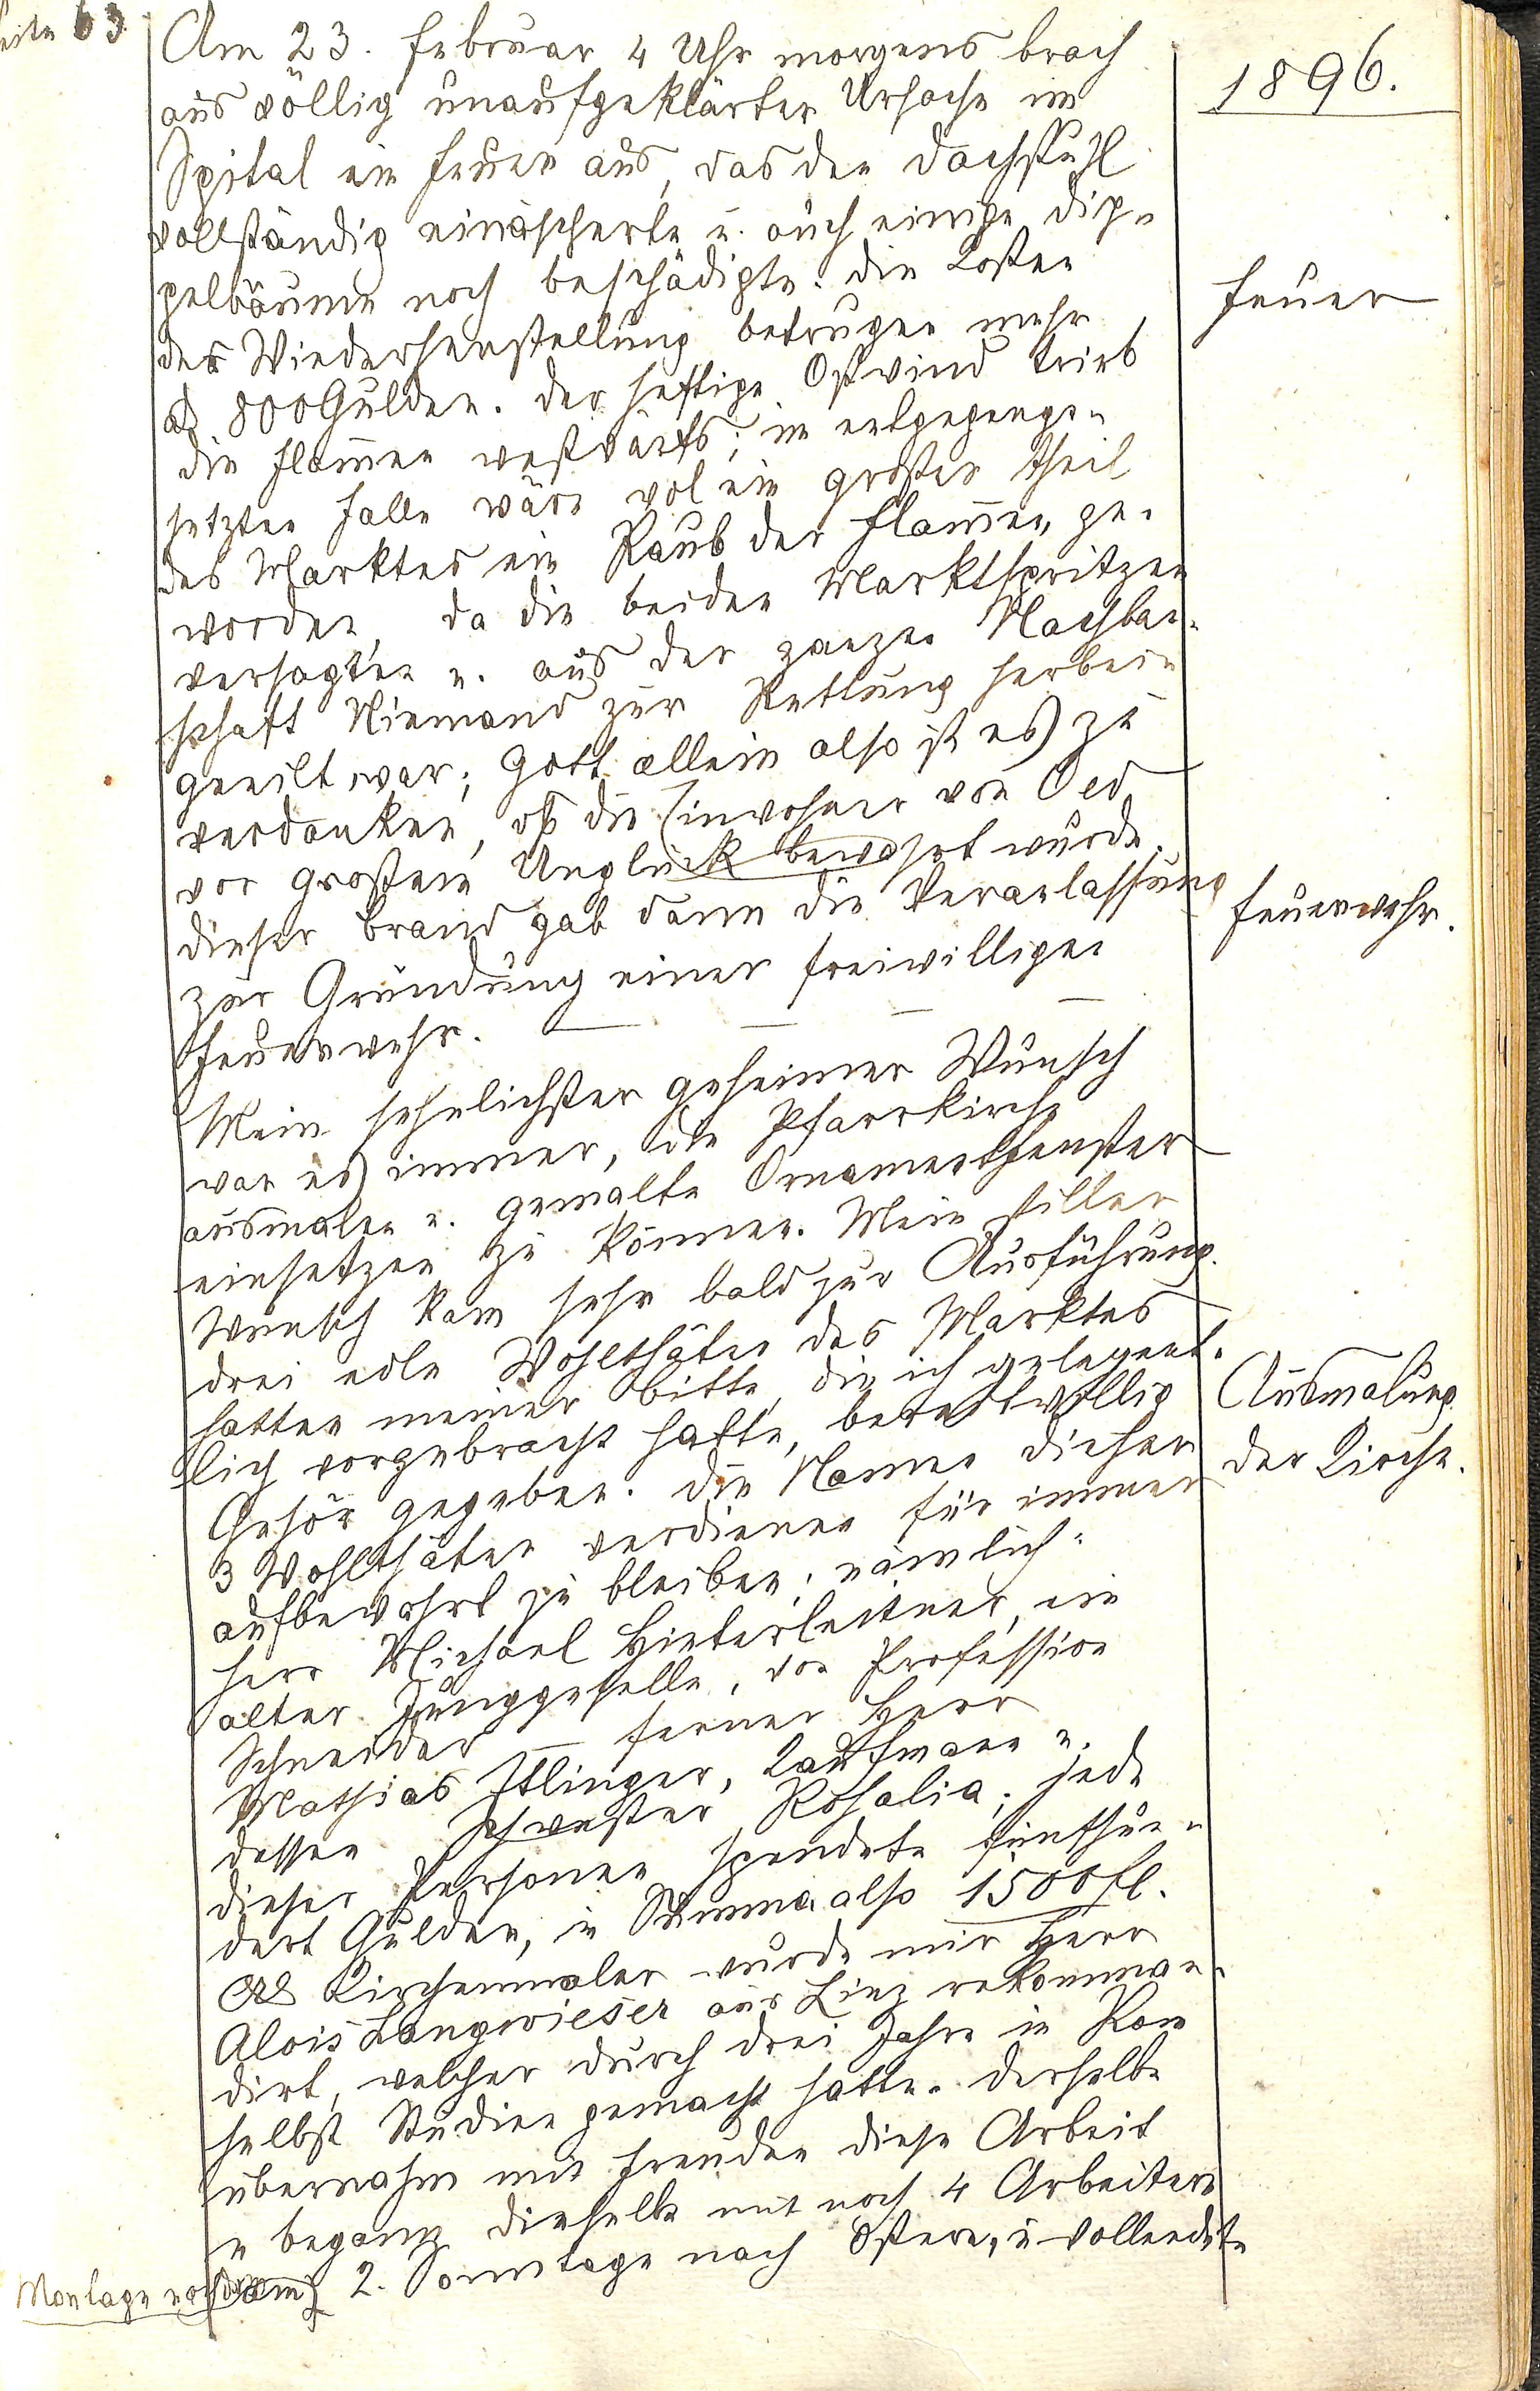 Seite 63
1896.
Am 23. Februar 4 Uhr morgens brach
aus völlig unaufgeklärter Ursache im
Spital ein Feuer aus, das den Dachstuhl
vollständig einäscherte u. auch einige Dip-
pelbäume noch beschädigte. Die Kosten
der Wiederherstellung betrugen mehr
als 800 Gulden. Der heftige Ostwind trieb
die Flam̄en westwärts; im entgegenge-
setzten Falle wäre wol ein großer Theil
des Marktes ein Raub der Flam̄en ge-
worden, da die beiden Marktspritzen
versagten u. aus der ganzen Nachbar-
schaft Niemand zur Rettung herbei-
geeilt war; Gott allein also ist es zu
verdanken, daß die Einwohner von Oed
vor großem Unglück bewahrt wurde.
Dieser Brand gab dann die Veranlassung
zur Gründung einer freiwilligen
Feuerwehr. — — — —
Feuer
Feuerwehr.
Mein sehnlichster geheimer Wunsch
war es immer, die Pfarrkirche
ausmalen u. gemalte Ornamentfenster
einsetzen zu können. Mein stiller
Wunsch kam sehr bald zur Ausführung.
Drei edle Wohlthäter des Marktes
hatten meiner Bitte, die ich gelegent-
lich vorgebracht hatte, bereitwillig
Gehör gegeben. Die Namen dieser
3 Wohlthäter verdienen für immer
aufbewahrt zu bleiben; nämlich:
Herr Michael Hinterleitner, ein
alter Junggeselle, von Profession
Schneider — ferner Herr
Mathias Itlinger, Kaufmann u.
dessen Schwester Rosalia; jede
dieser Personen spendete fünfhun-
dert Gulden, in Summa also 1500 fl.
Als Kirchenmaler wurde mir Herr
Alois Langwieser aus Linz rekomman-
dirt, welcher durch drei Jahre in Rom
selbst Studien gemacht hatte. Derselbe
übernahm mit Freuden diese Arbeit
u begann dieselbe mit noch 4 Arbeitern
Montage nach dem 2. Sonntage nach Ostern, u vollendete
Ausmalung
der Kirche.